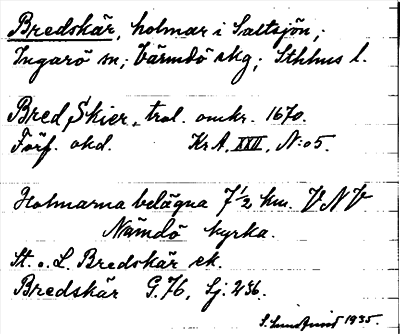 Bredskär, holmar i Saltsjön,
Ingarö sn; Värmdö skg; Sthlms l.
Bred Skier, trol. omkr. 1670.
Förf. okd. Kr A. XXII, N:o 5.
Holmarna belägna 7 1/2 km. V N V
Nämdö kyrka.
St. o. L. Bredskär ek.
Bredskär G. 76, Sj: 236.
S. Lundqvist 1935